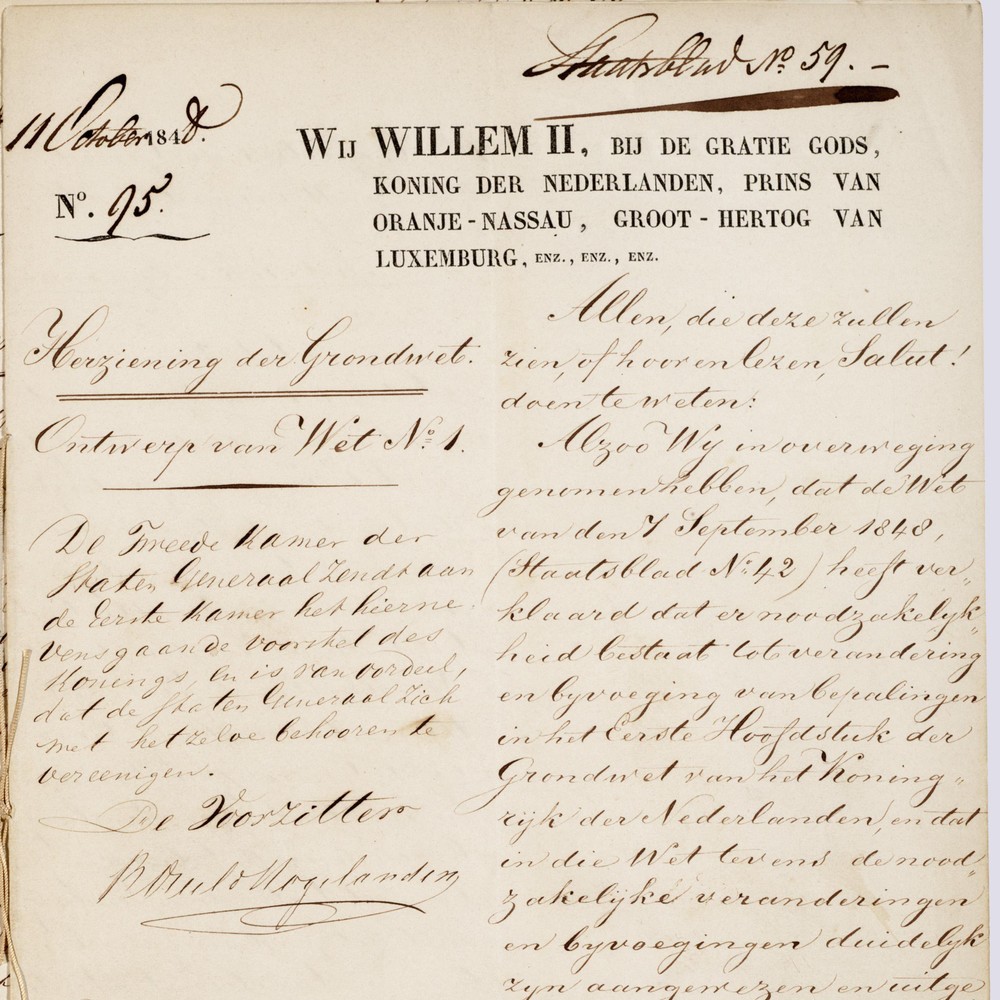 Staatsblad No. 59. -
11 October 1848.
No. 95.
Wij WILLEM II, BIJ DE GRATIE GODS,
KONING DER NEDERLANDEN, PRINS VAN
ORANJE-NASSAU, GROOT-HERTOG VAN
LUXEMBURG, ENZ., ENZ., ENZ.
Herziening der Grondwet.
Ontwerp van Wet No. 1.
De Tweede Kamer der
Staten Generaal zendt aan
de Eerste Kamer het hierne
vensgaande voorstel des
Konings, en is van oordeel,
dat de Staten Generaal zich
met hetzelve behooren te
vereenigen.
De Voorzitter
Allen, die deze zullen
zien, of hooren lezen, Salut!
doen te weten:
Alzoo Wij in overweging
genomen hebben, dat de Wet
van den 7 September 1848,
(Staatsblad No. 42) heeft ver„
klaard dat er noodzakelyk„
heid bestaat tot verandering
en byvoeging van bepalingen
in het Eerste Hoofdstuk der
Grondwet van het Koning„
rijk der Nederlanden, en dat
in die Wet tevens de nood„
zakelijke veranderingen
en byvoegingen duidelyk
zyn aangewezen en uitge